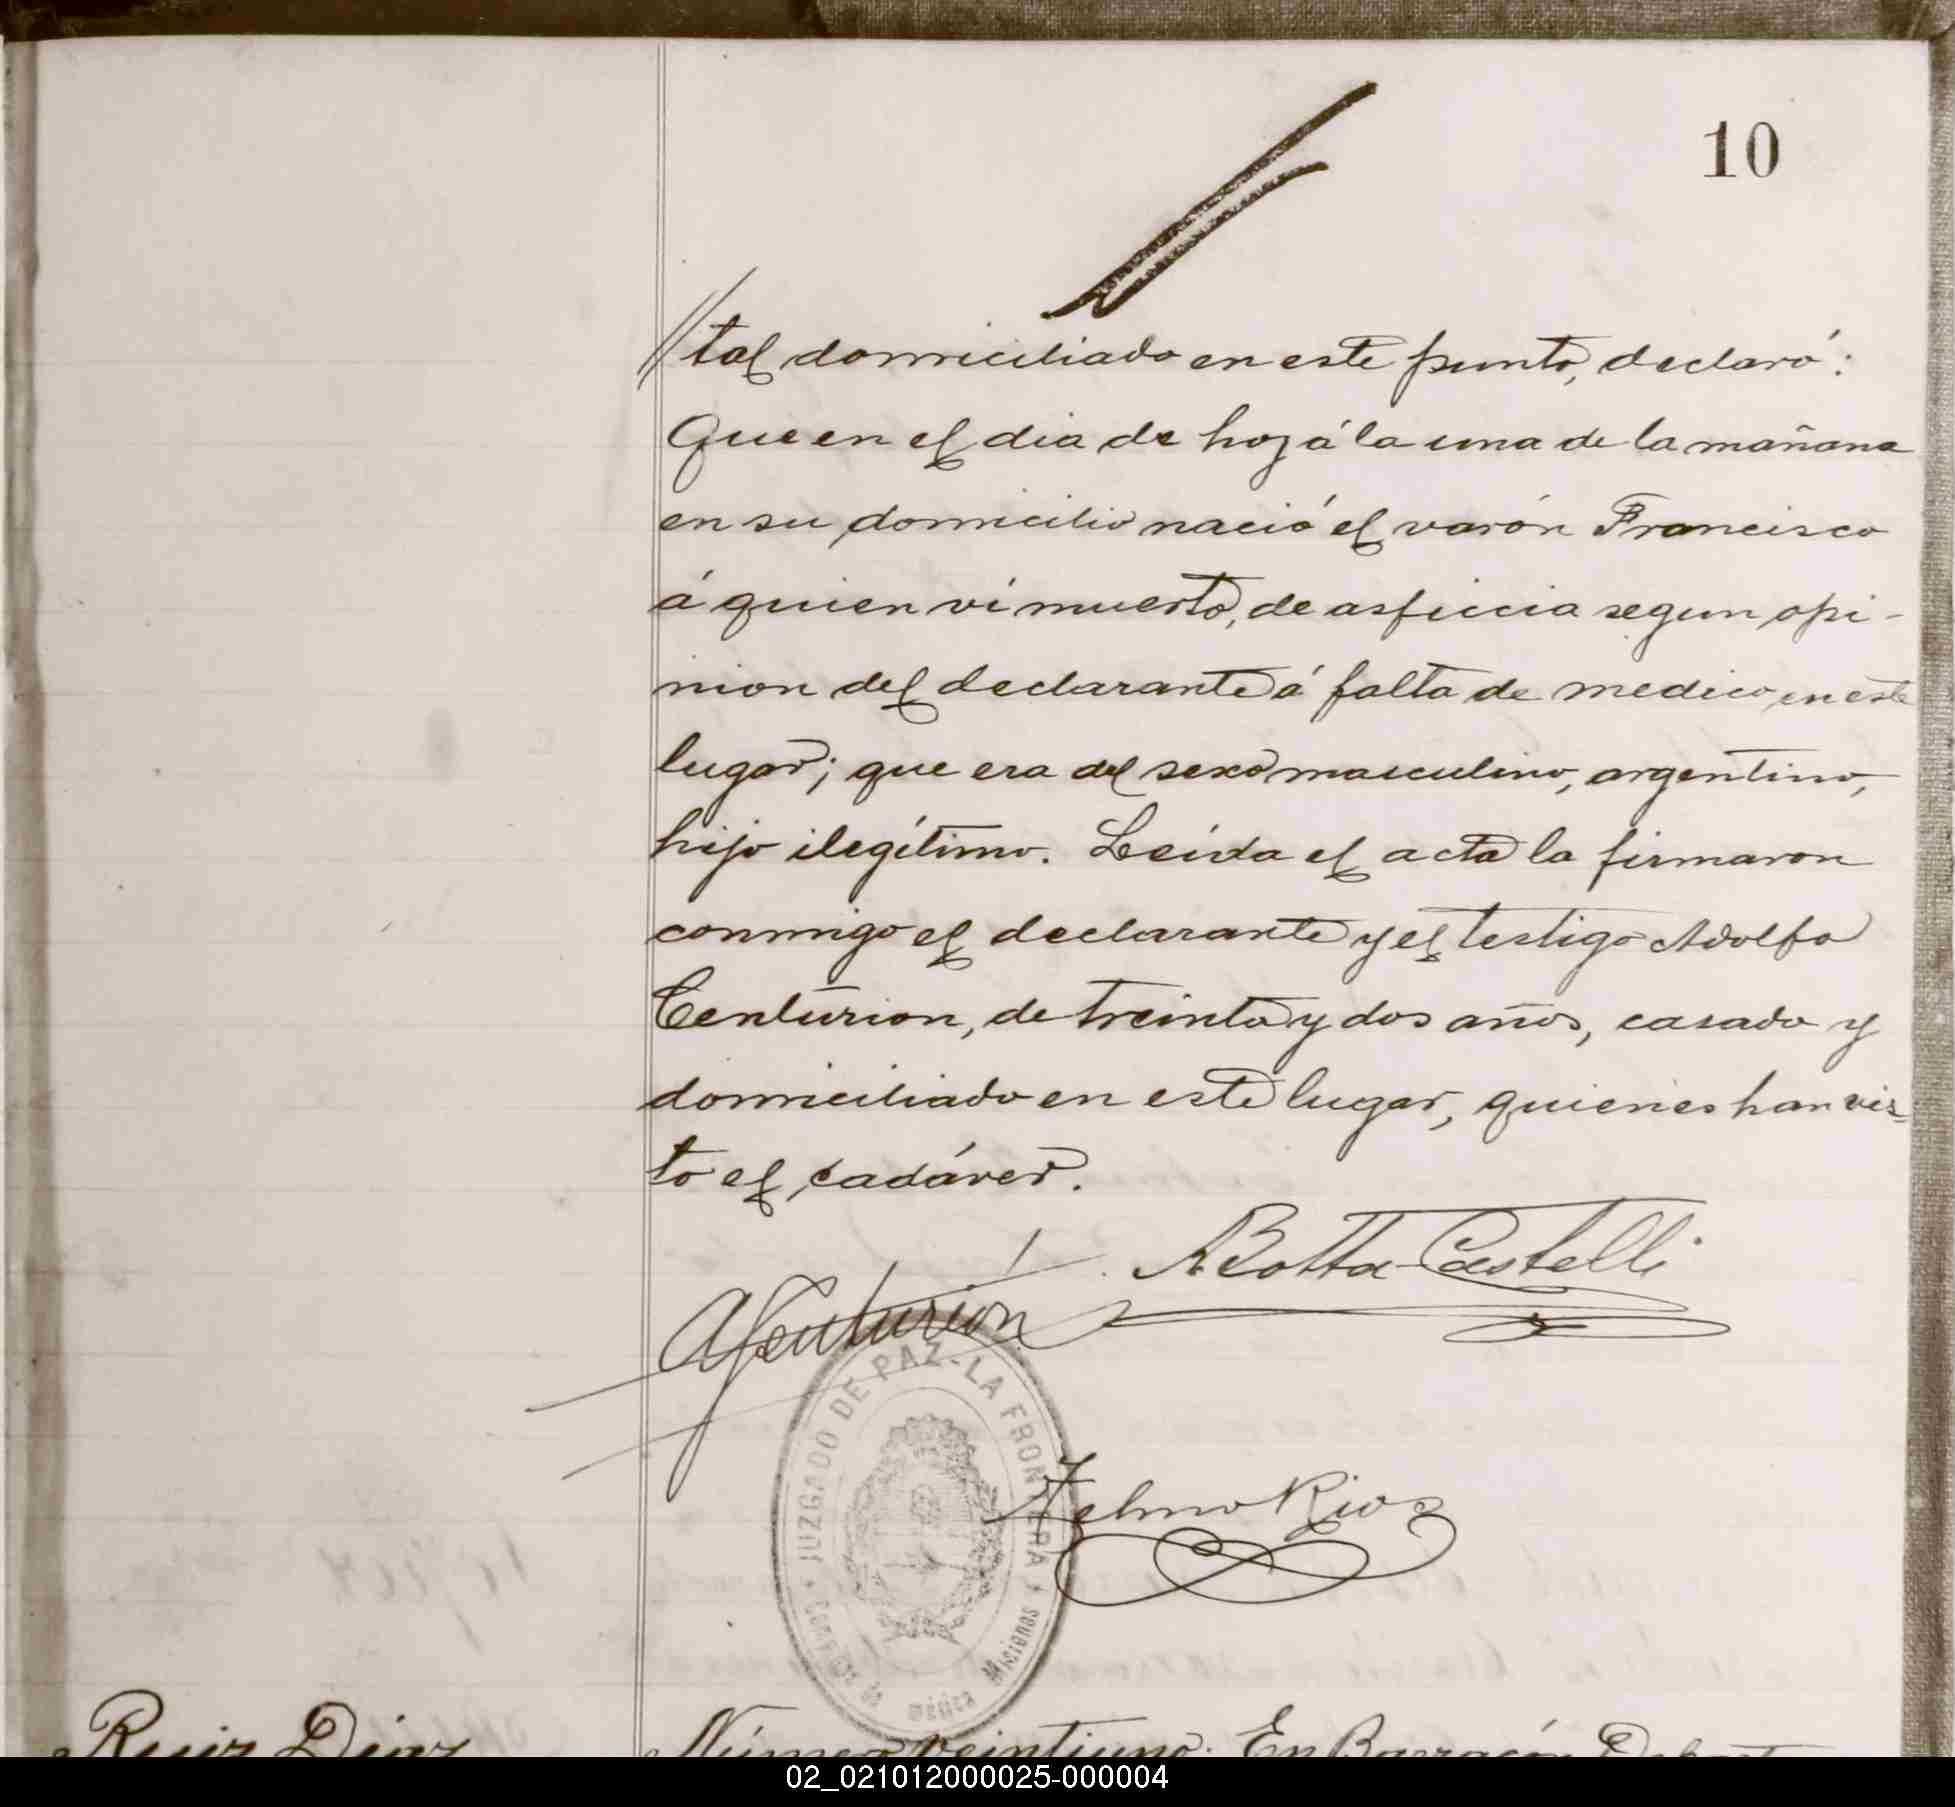 10
// tal domiciliado en este punto, declaró:
Que en el dia de hoy á la una de la mañana
en su domicilio nació el varón Francisco
á quien ví muerto, de asficcia segun opi-
nion del declarante á falta de medico en este
lugar; que era del sexo masculino, argentino,
hijo ilegítimo. Leída el acta la firmaron
conmigo el declarante y el testigo Adolfo
Centurion, de treinta y dos años, casado y
domiciliado en este lugar, quienes han vis-
to el cadáver.
A Botta Castelli
A Centurión
JUZGADO DE PAZ - LA FRONTERA
Misiones
Telmo Rios
Ruiz Diaz
Número veintiuno. En Barracón
02_021012000025-000004